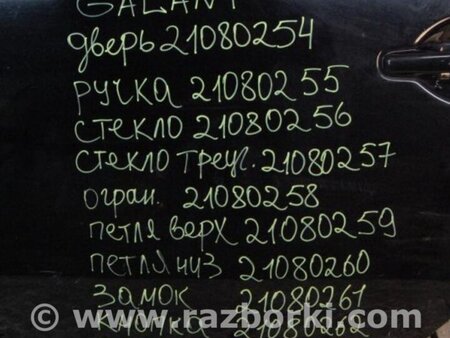 GALANT
дверь 21080254
ручка 21080255
стекло 21080256
стекло треуг. 21080257
огран. 21080258
петля верх 21080259
петля низ 21080260
замок 21080261
кнопка 21080262
© www.razborki.com